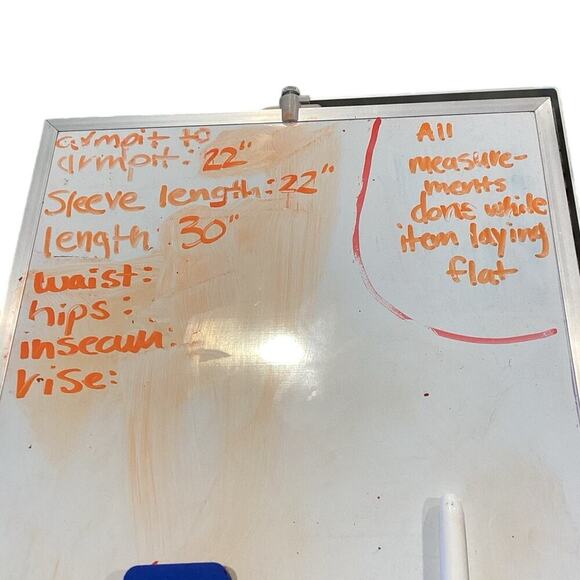 armpit to
armpit: 22"
Sleeve length: 22"
length: 30"
waist:
hips:
inseam:
rise:
All
measure-
ments
done while
item laying
flat